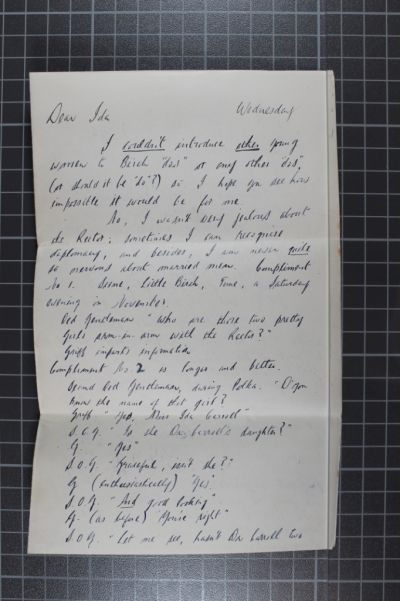 Dear Ida Wednesday
I couldn't introduce other young
women to Birch "do's" or any other "do's"
(or should it be "do"?) so I hope you see how
impossible it would be for me.
No, I wasn't very jealous about
the Rector; sometimes I can recognise
diplomacy, and besides, I am never quite
so nervous about married men. Compliment
No 1. Scene, Little Birch, Time, a Saturday
evening in November.
Old Gentleman "Who are those two pretty
girls arm-in-arm with the Rector?"
Griff imparts information
Compliment No 2 is longer and better.
Second Old Gentleman, during Polka. "D'you
know the name of that girl?
Griff. "Yes, Miss Ida Carroll"
S.O.G. "Is she Doc Carroll's daughter?"
G. "Yes"
S.O.G. "Graceful, isn't she?"
G (enthusiastically) "Yes"
S.O.G. "And good looking"
G. (as before) "You're right"
S.O.G. "Let me see, hasn't Dr Carroll two